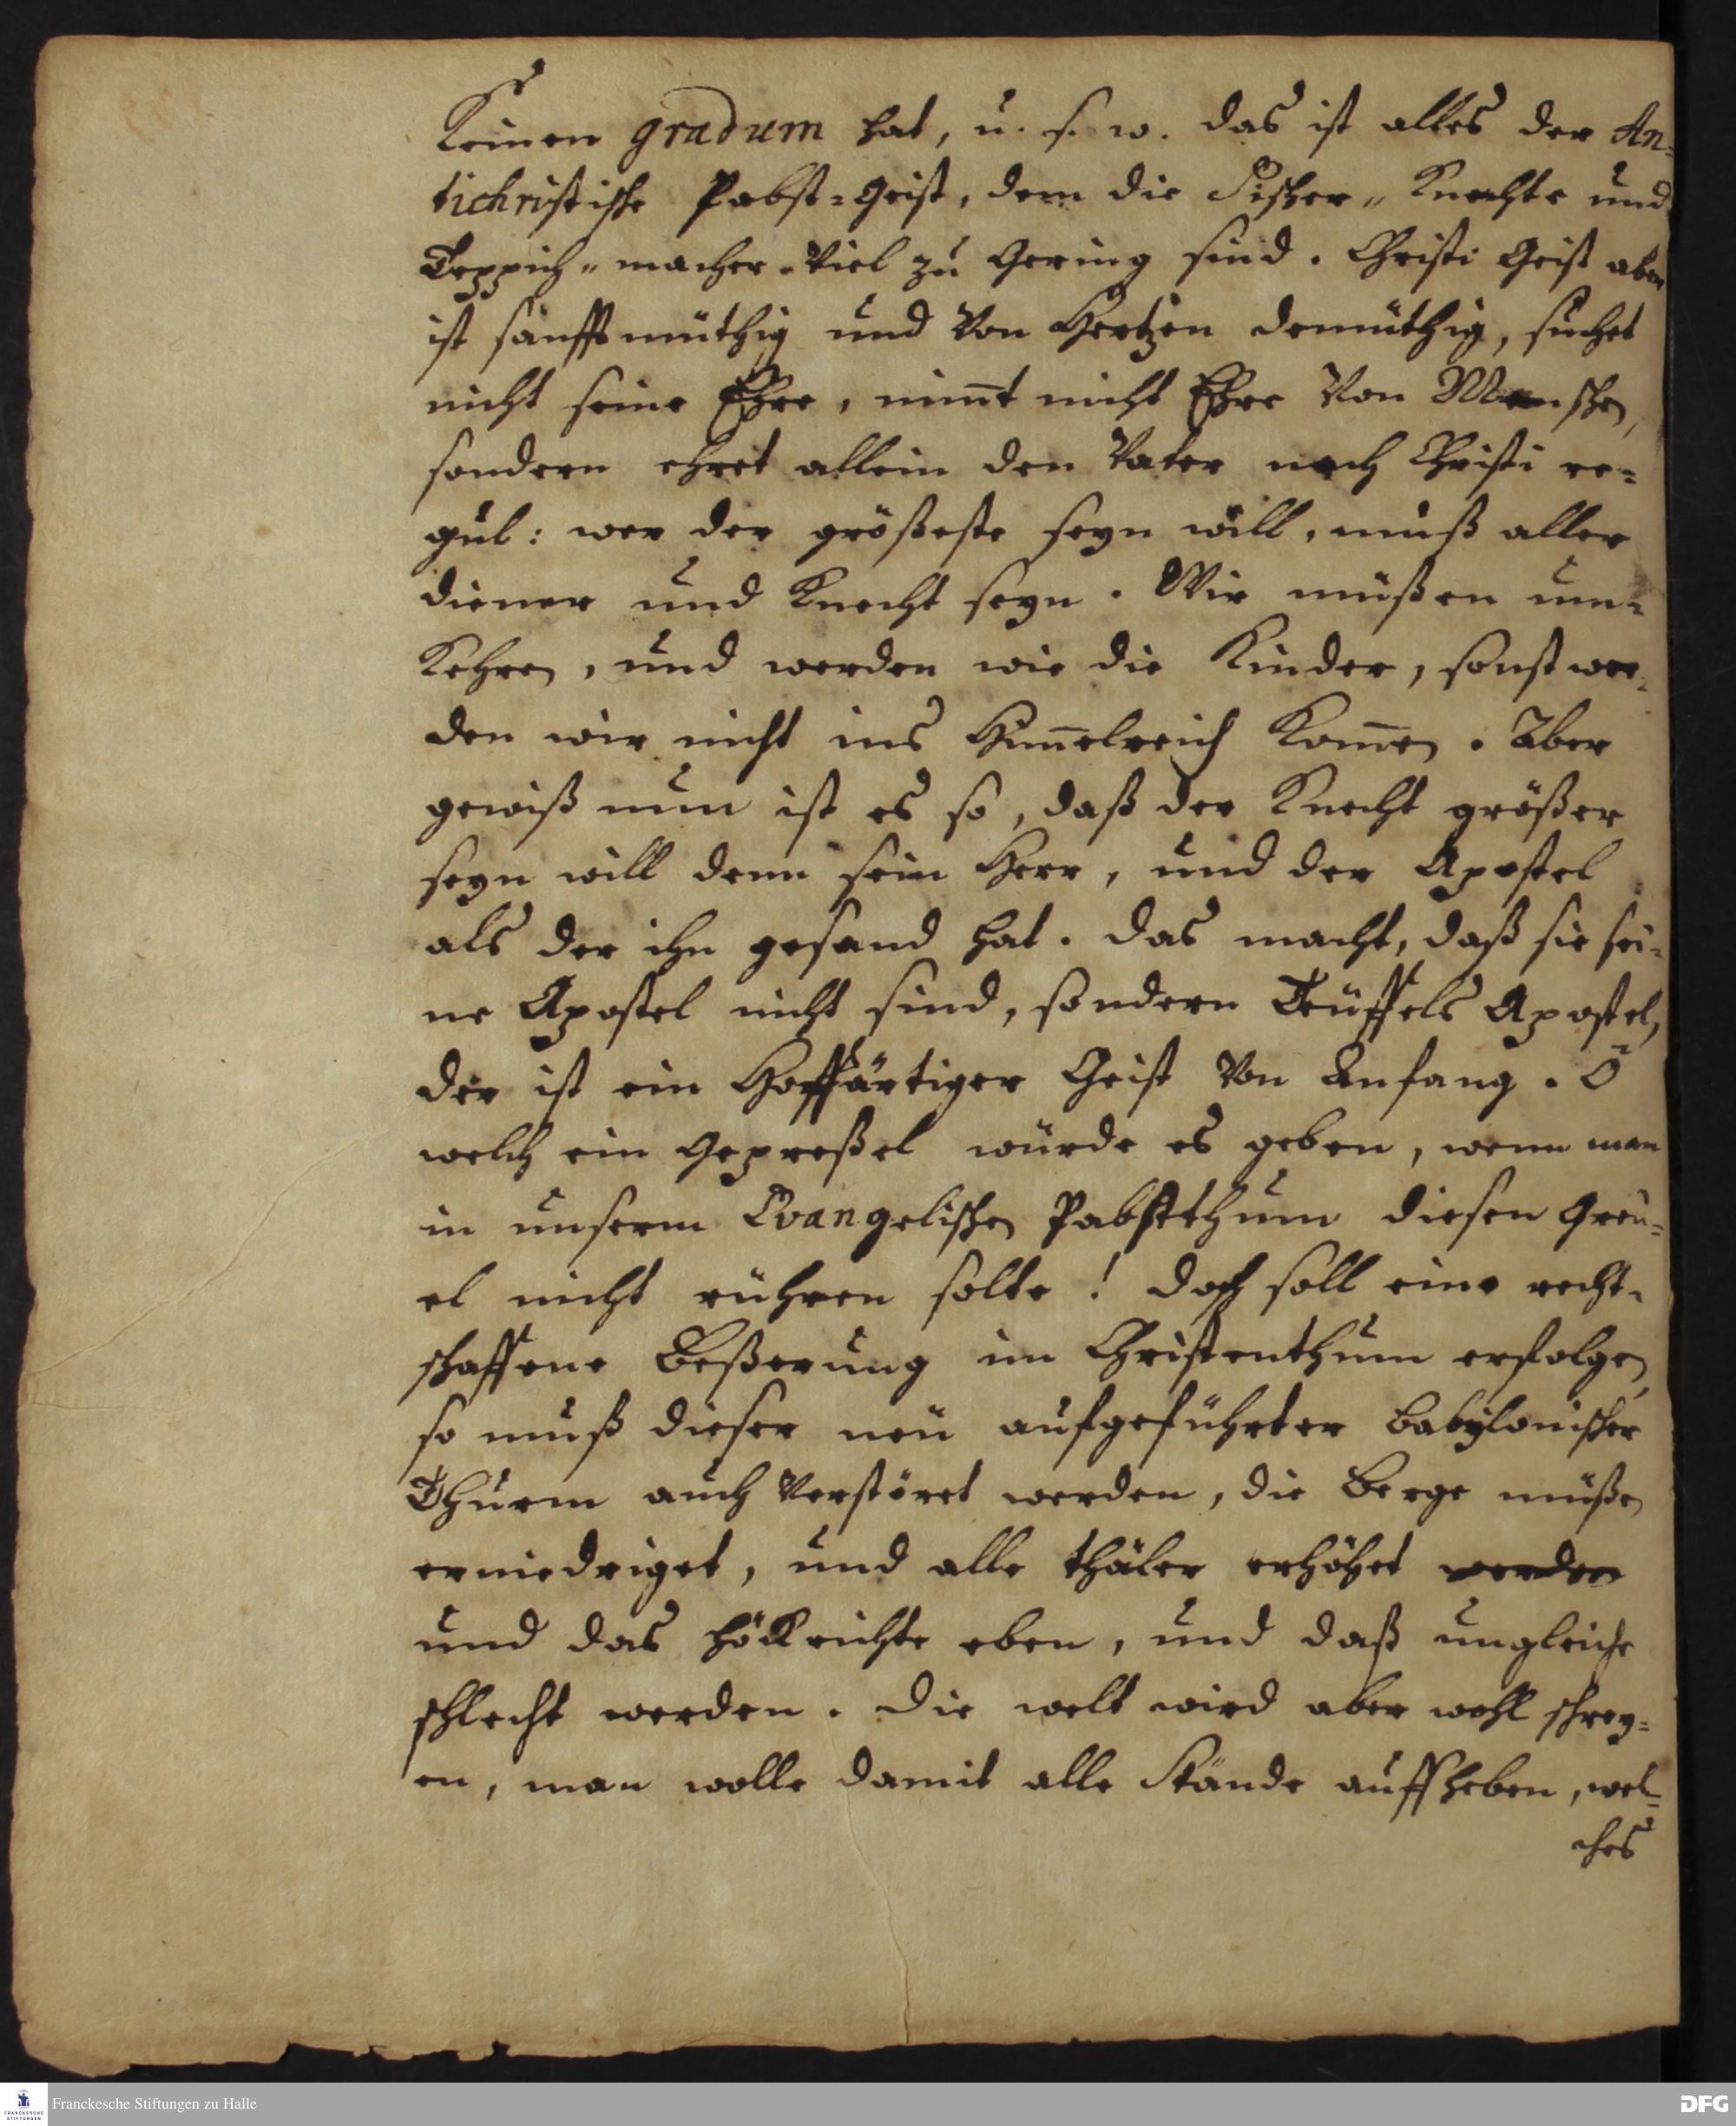 Keinen gradum hat, u. s. w. das ist alles der An-
tichristische Pabst-Geist, dem die Fischer- Knechte und
Teppich-macher-Viel zu Gering sind. Christi Geist aber
ist sanfftmüthig und Von Hertzen demüthig, suchet
nicht seine Ehre, nim̄t nicht Ehre Von Menschen,
sondern ehret allein den Vater nach Christi re-
gul: wer der größeste seyn will, muß aller
diener und Knecht seyn. Wir müßen um-
Kehren, und werden wie die Kinder, sonst wer-
den wir nicht ins Him̄elreich Kom̄en. Aber
gewiß nun ist es so, daß der Knecht größer
seyn will denn sein Herr, und der Apostel
als der ihn gesand hat. das macht, daß sie sei-
ne Apostel nicht sind, sondern Teüffels Apostel,
der ist ein Hoffärtiger Geist Von Anfang. O
welch ein Gepreßel würde es geben, wenn man
in unserm Evangelischen Pabstthum diesen Greü-
el nicht rühren solte! doch soll eine recht-
schaffene Beßerung im Christenthum erfolgen,
so muß dieser neü aufgeführter Babylonischer
Thurm auch Verstöret werden, die Berge müßen
erniedriget, und alle thäler erhöhet werden
und das höckrichte eben, und daß ungleiche
schlecht werden. die welt wird aber wohl schrey-
en, man wolle damit alle Stände auffheben, wel-
ches
Franckesche Stiftungen zu Halle
FRANCKESCHE
STIFTUNGEN
DFG